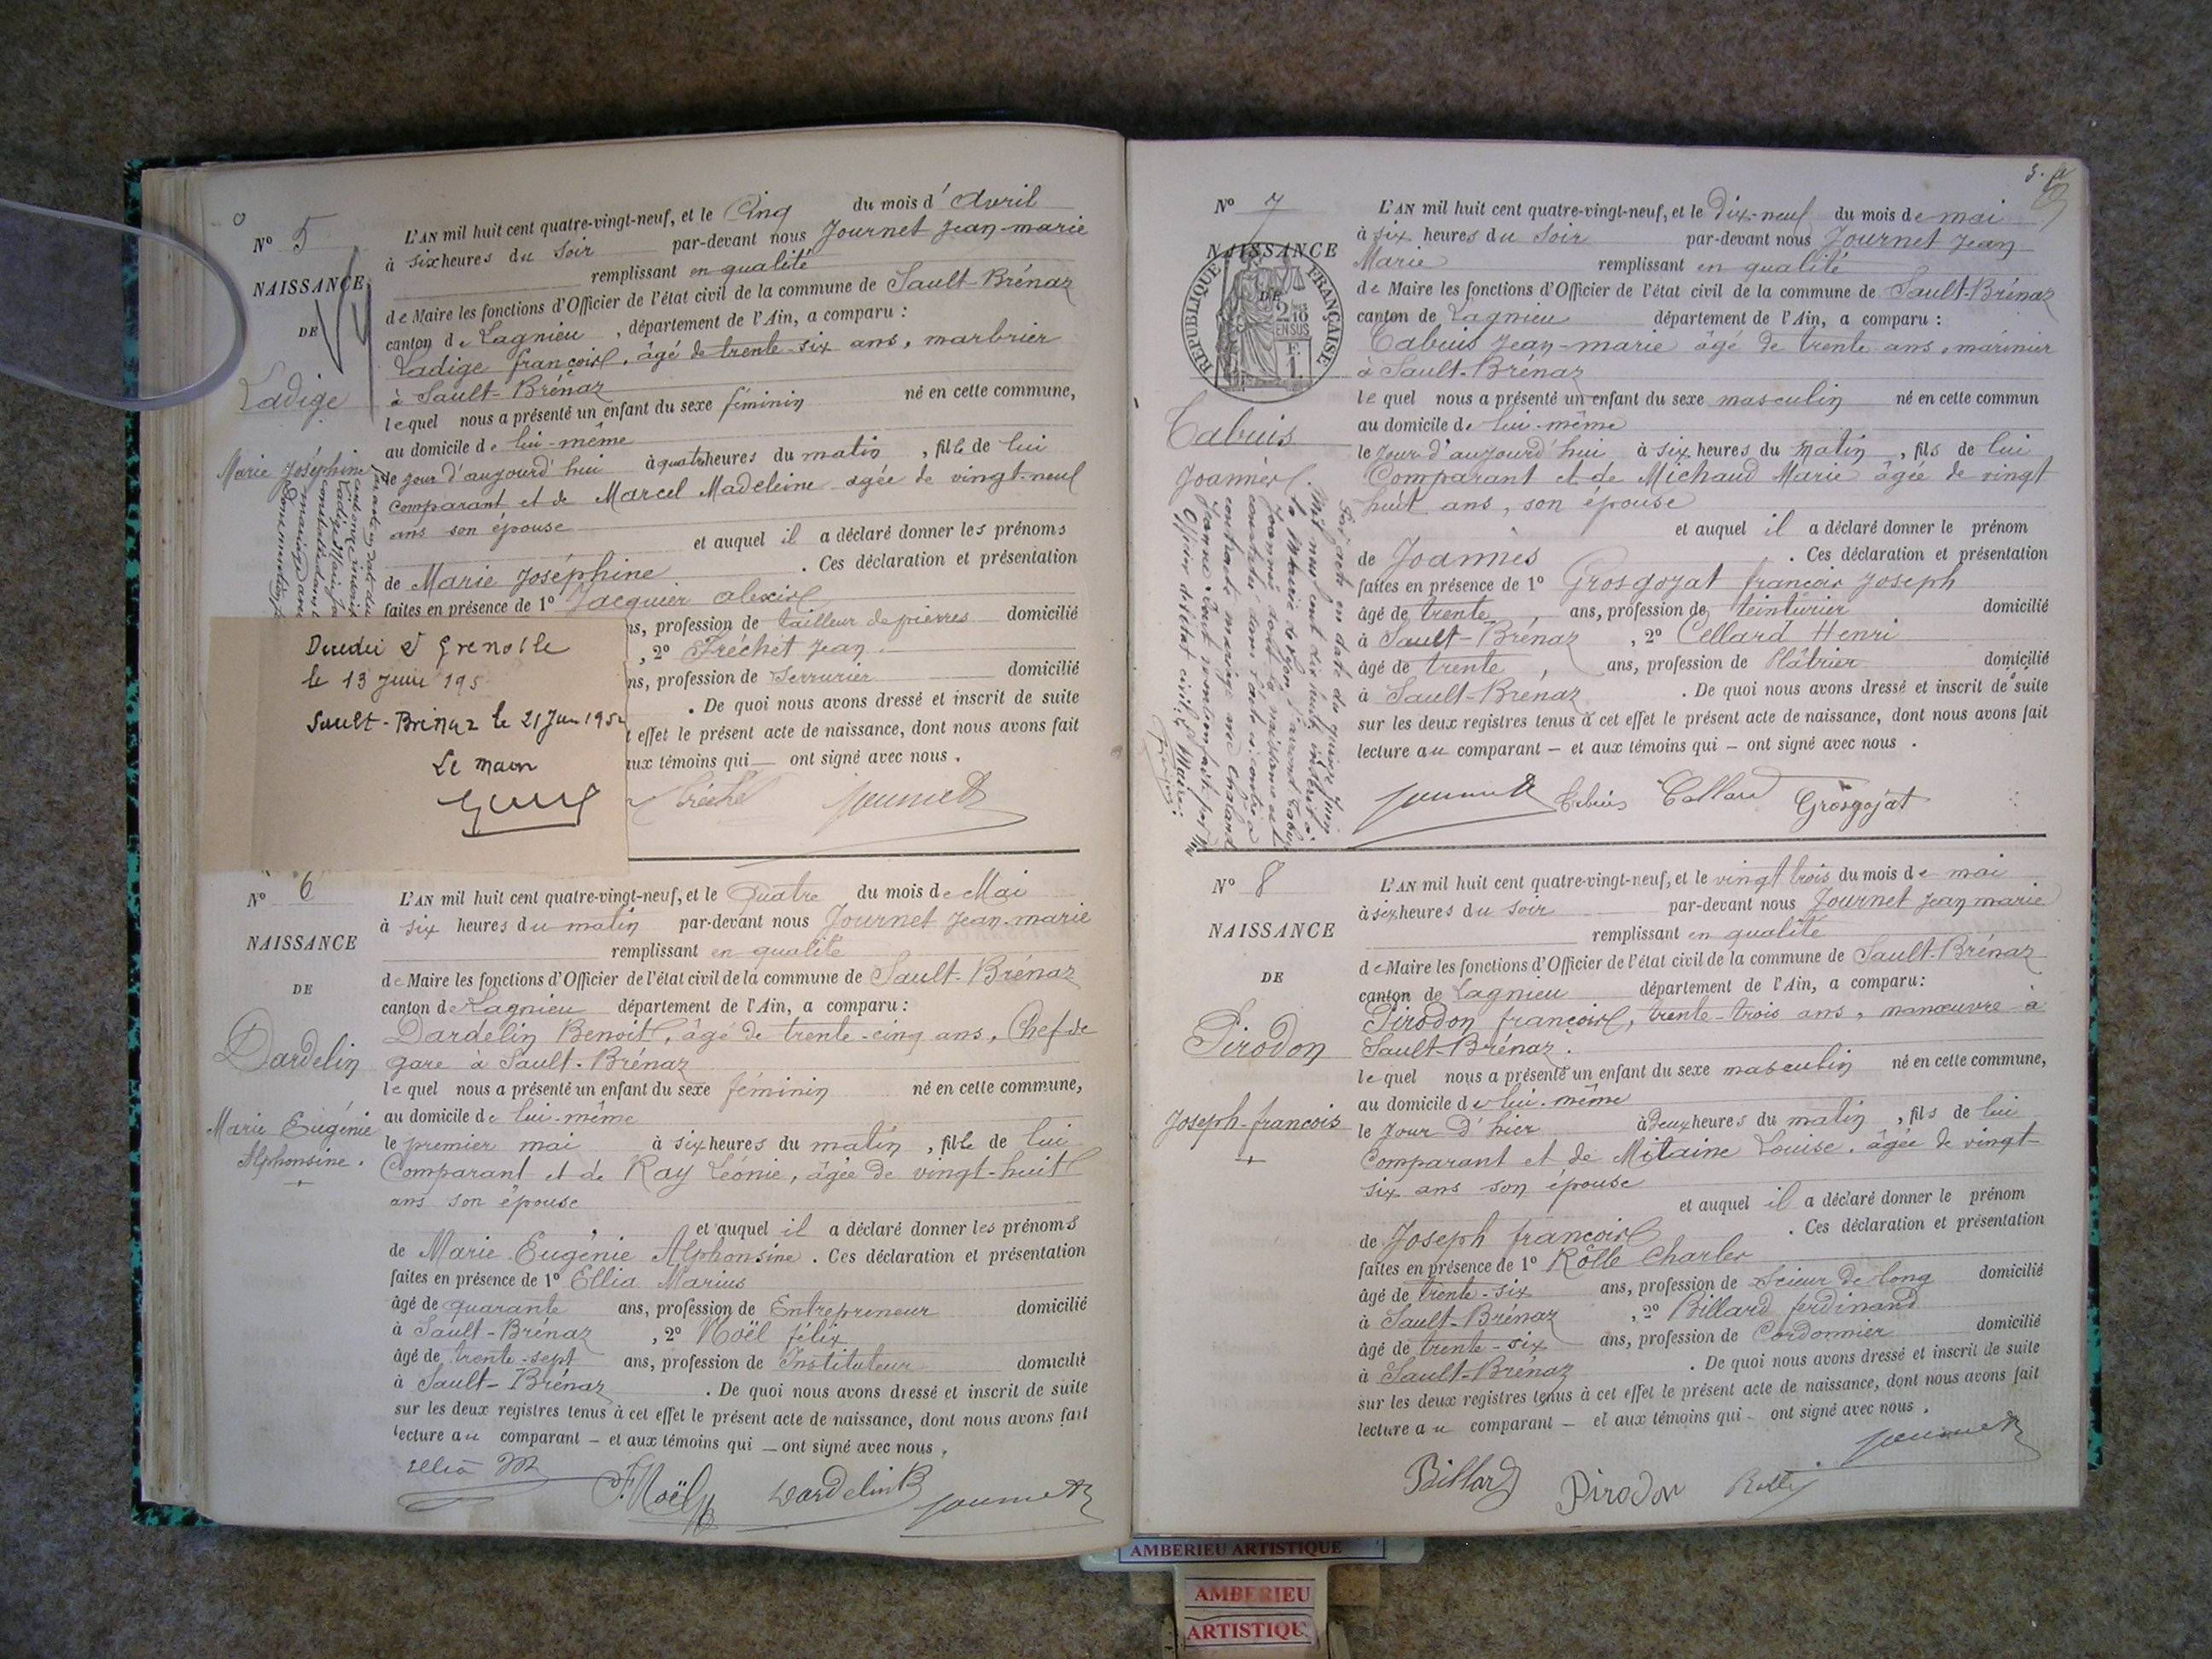 Nº 5
NAISSANCE
DE
Ladige
Marie Joséphine
L'AN mil huit cent quatre-vingt-neuf, et le Cinq du mois d'Avril
à six heures du Soir par-devant nous Journet Jean-marie
remplissant en qualité
de Maire les fonctions d'Officier de l'état civil de la commune de Sault-Brénaz
canton de Lagnieu, département de l'Ain, a comparu :
Ladige françois, âgé de trente-six ans, marbrier
à Sault-Brénaz
lequel nous a présenté un enfant du sexe féminin né en cette commune,
au domicile de lui-même
le jour d'aujourd'hui à quatre heures du matin, fille de lui
Comparant et de Marcel Madeleine agée de vingt-neuf
ans son épouse
et auquel il a déclaré donner les prénoms
de Marie Joséphine. Ces déclaration et présentation
faites en présence de 1º Jacquier alexis
ns, profession de tailleur de pierres domicilié
, 2º Fréchet Jean
ns, profession de Serrurier domicilié
. De quoi nous avons dressé et inscrit de suite
t effet le présent acte de naissance, dont nous avons fait
aux témoins qui — ont signé avec nous.
Fréchet Journet
Décédée à Grenoble
le 13 Juin 195
Sault-Brénaz le 21 Juin 195
Le maire
Nº 6
NAISSANCE
DE
Dardelin
Marie Eugénie
Alphonsine.
L'AN mil huit cent quatre-vingt-neuf, et le Quatre du mois de Mai
à six heures du matin par-devant nous Journet Jean-marie
remplissant en qualité
de Maire les fonctions d'Officier de l'état civil de la commune de Sault-Brénaz
canton de Lagnieu département de l'Ain, a comparu :
Dardelin Benoit, âgé de trente-cinq ans, Chef de
gare à Sault-Brénaz
lequel nous a présenté un enfant du sexe féminin né en cette commune,
au domicile de lui-même
le premier mai à six heures du matin, fille de lui
Comparant et de Ray Léonie, âgée de vingt-huit
ans son épouse
et auquel il a déclaré donner les prénoms
de Marie Eugénie Alphonsine. Ces déclaration et présentation
faites en présence de 1º Ellia Marius
âgé de quarante ans, profession de Entrepreneur domicilié
à Sault-Brénaz, 2º Noël félix
âgé de trente-sept ans, profession de Instituteur domicilié
à Sault-Brénaz. De quoi nous avons dressé et inscrit de suite
sur les deux registres tenus à cet effet le présent acte de naissance, dont nous avons fait
lecture au comparant — et aux témoins qui — ont signé avec nous.
Ellia M F. Noël Dardelin B Journet
Nº 7
NAISSANCE
DE
RÉPUBLIQUE FRANÇAISE
2/10
EN SUS
F.
1.
Tabuis
Joannès
L'AN mil huit cent quatre-vingt-neuf, et le Dix-neuf du mois de mai
à six heures du Soir par-devant nous Journet Jean
Marie remplissant en qualité
de Maire les fonctions d'Officier de l'état civil de la commune de Sault-Brénaz
canton de Lagnieu département de l'Ain, a comparu :
Tabuis Jean-marie âgé de trente ans, marinier
à Sault-Brénaz
lequel nous a présenté un enfant du sexe masculin né en cette commun
au domicile de lui-même
le Jour d'aujourd'hui à six heures du Matin, fils de lui
Comparant et de Michaud Marie âgée de vingt
huit ans, son épouse
et auquel il a déclaré donner le prénom
de Joannès. Ces déclaration et présentation
faites en présence de 1º Grosgojat françois Joseph
âgé de trente ans, profession de teinturier domicilié
à Sault-Brénaz, 2º Cellard Henri
âgé de trente, ans, profession de Plâtrier domicilié
à Sault-Brénaz. De quoi nous avons dressé et inscrit de suite
sur les deux registres tenus à cet effet le présent acte de naissance, dont nous avons fait
lecture au comparant — et aux témoins qui — ont signé avec nous.
Journet Tabuis Cellard Grosgojat
Nº 8
NAISSANCE
DE
Pirodon
Joseph-francois
L'AN mil huit cent quatre-vingt-neuf, et le vingt trois du mois de mai
à six heures du soir par-devant nous Journet Jean marie
remplissant en qualité
de Maire les fonctions d'Officier de l'état civil de la commune de Sault-Brénaz
canton de Lagnieu département de l'Ain, a comparu :
Pirodon françois, trente-trois ans, manœuvre à
Sault-Brénaz.
lequel nous a présenté un enfant du sexe masculin né en cette commune,
au domicile de lui-même
le Jour d'hier à deux heures du matin, fils de lui
Comparant et de Mitaine Louise, âgée de vingt-
six ans son épouse
et auquel il a déclaré donner le prénom
de Joseph françois. Ces déclaration et présentation
faites en présence de 1º Rolle Charles
âgé de trente-six ans, profession de Scieur de long domicilié
à Sault-Brénaz, 2º Billard ferdinand
âgé de trente-six ans, profession de Cordonnier domicilié
à Sault-Brénaz. De quoi nous avons dressé et inscrit de suite
sur les deux registres tenus à cet effet le présent acte de naissance, dont nous avons fait
lecture au comparant — et aux témoins qui — ont signé avec nous.
Journet
Billard Pirodon Rolle
AMBERIEU ARTISTIQUE
AMBERIEU
ARTISTIQU